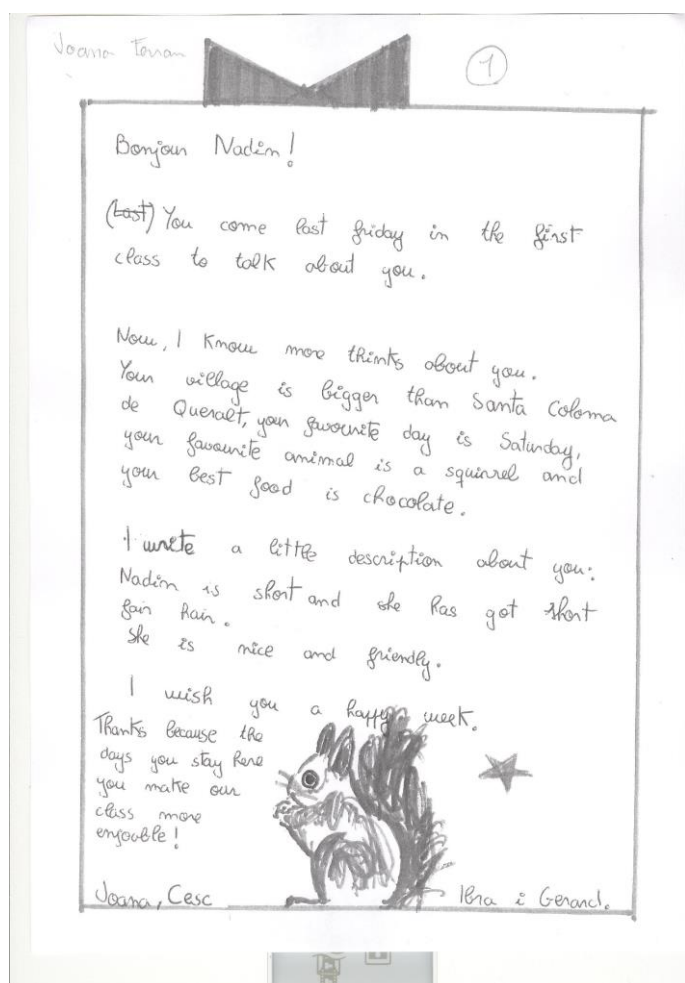 Joana Terran
1
Bonjour Nadin!
(Last) You come last friday in the first
class to talk about you.
Now, I know more thinks about you.
Your village is bigger than Santa Coloma
de Queralt, your favourite day is Saturday,
your favourite animal is a squirrel and
your best food is chocolate.
I write a little description about you:
Nadin is short and she has got short
fair hair.
she is nice and friendly.
I wish you a happy week.
Thanks because the
days you stay here
you make our
class more
enjouble!
Joana, Cesc
Ibra i Gerard.